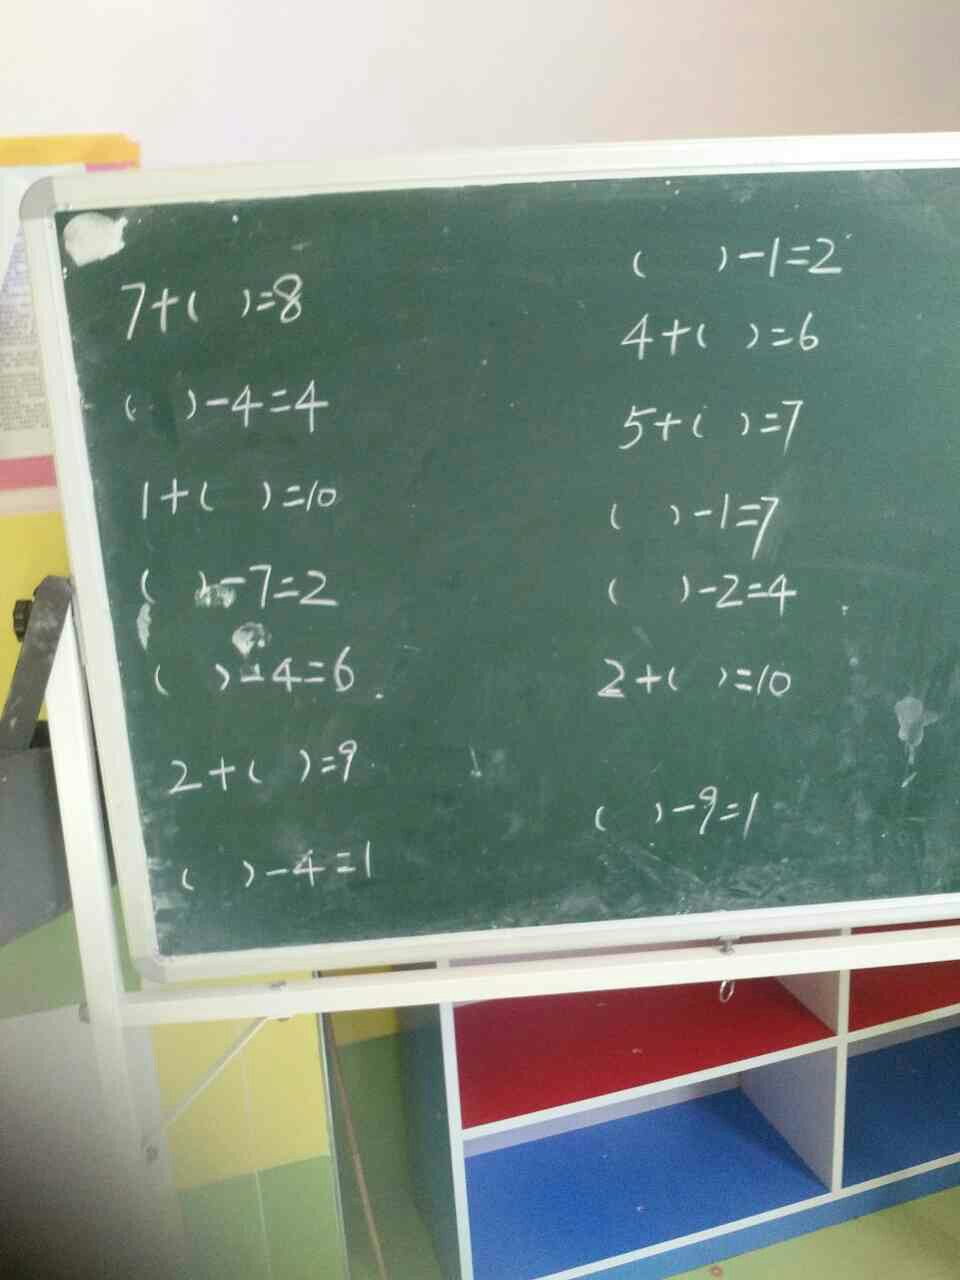 7+( )=8
( )-4=4
1+( )=10
( )-7=2
( )-4=6
2+( )=9
( )-4=1
( )-1=2
4+( )=6
5+( )=7
( )-1=7
( )-2=4
2+( )=10
( )-9=1